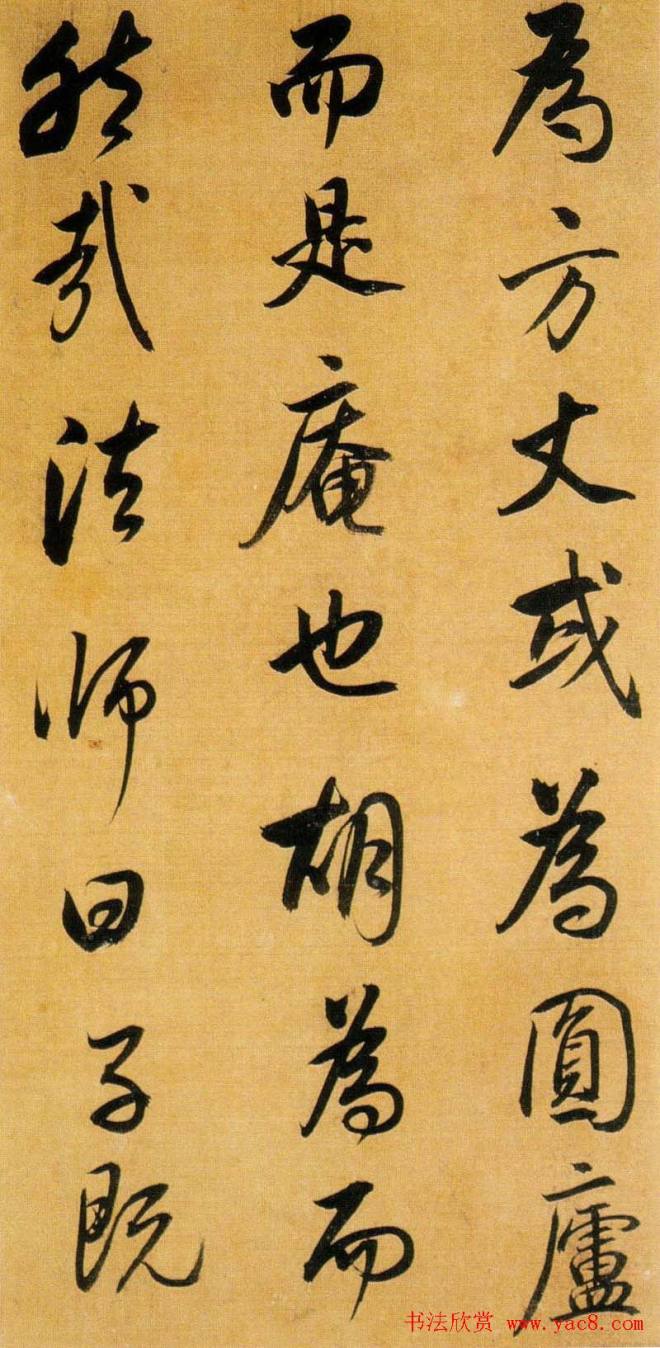 為方丈或為圓廬
而是庵也胡為而
然哉法师曰子既
书法欣赏 www.yac8.com